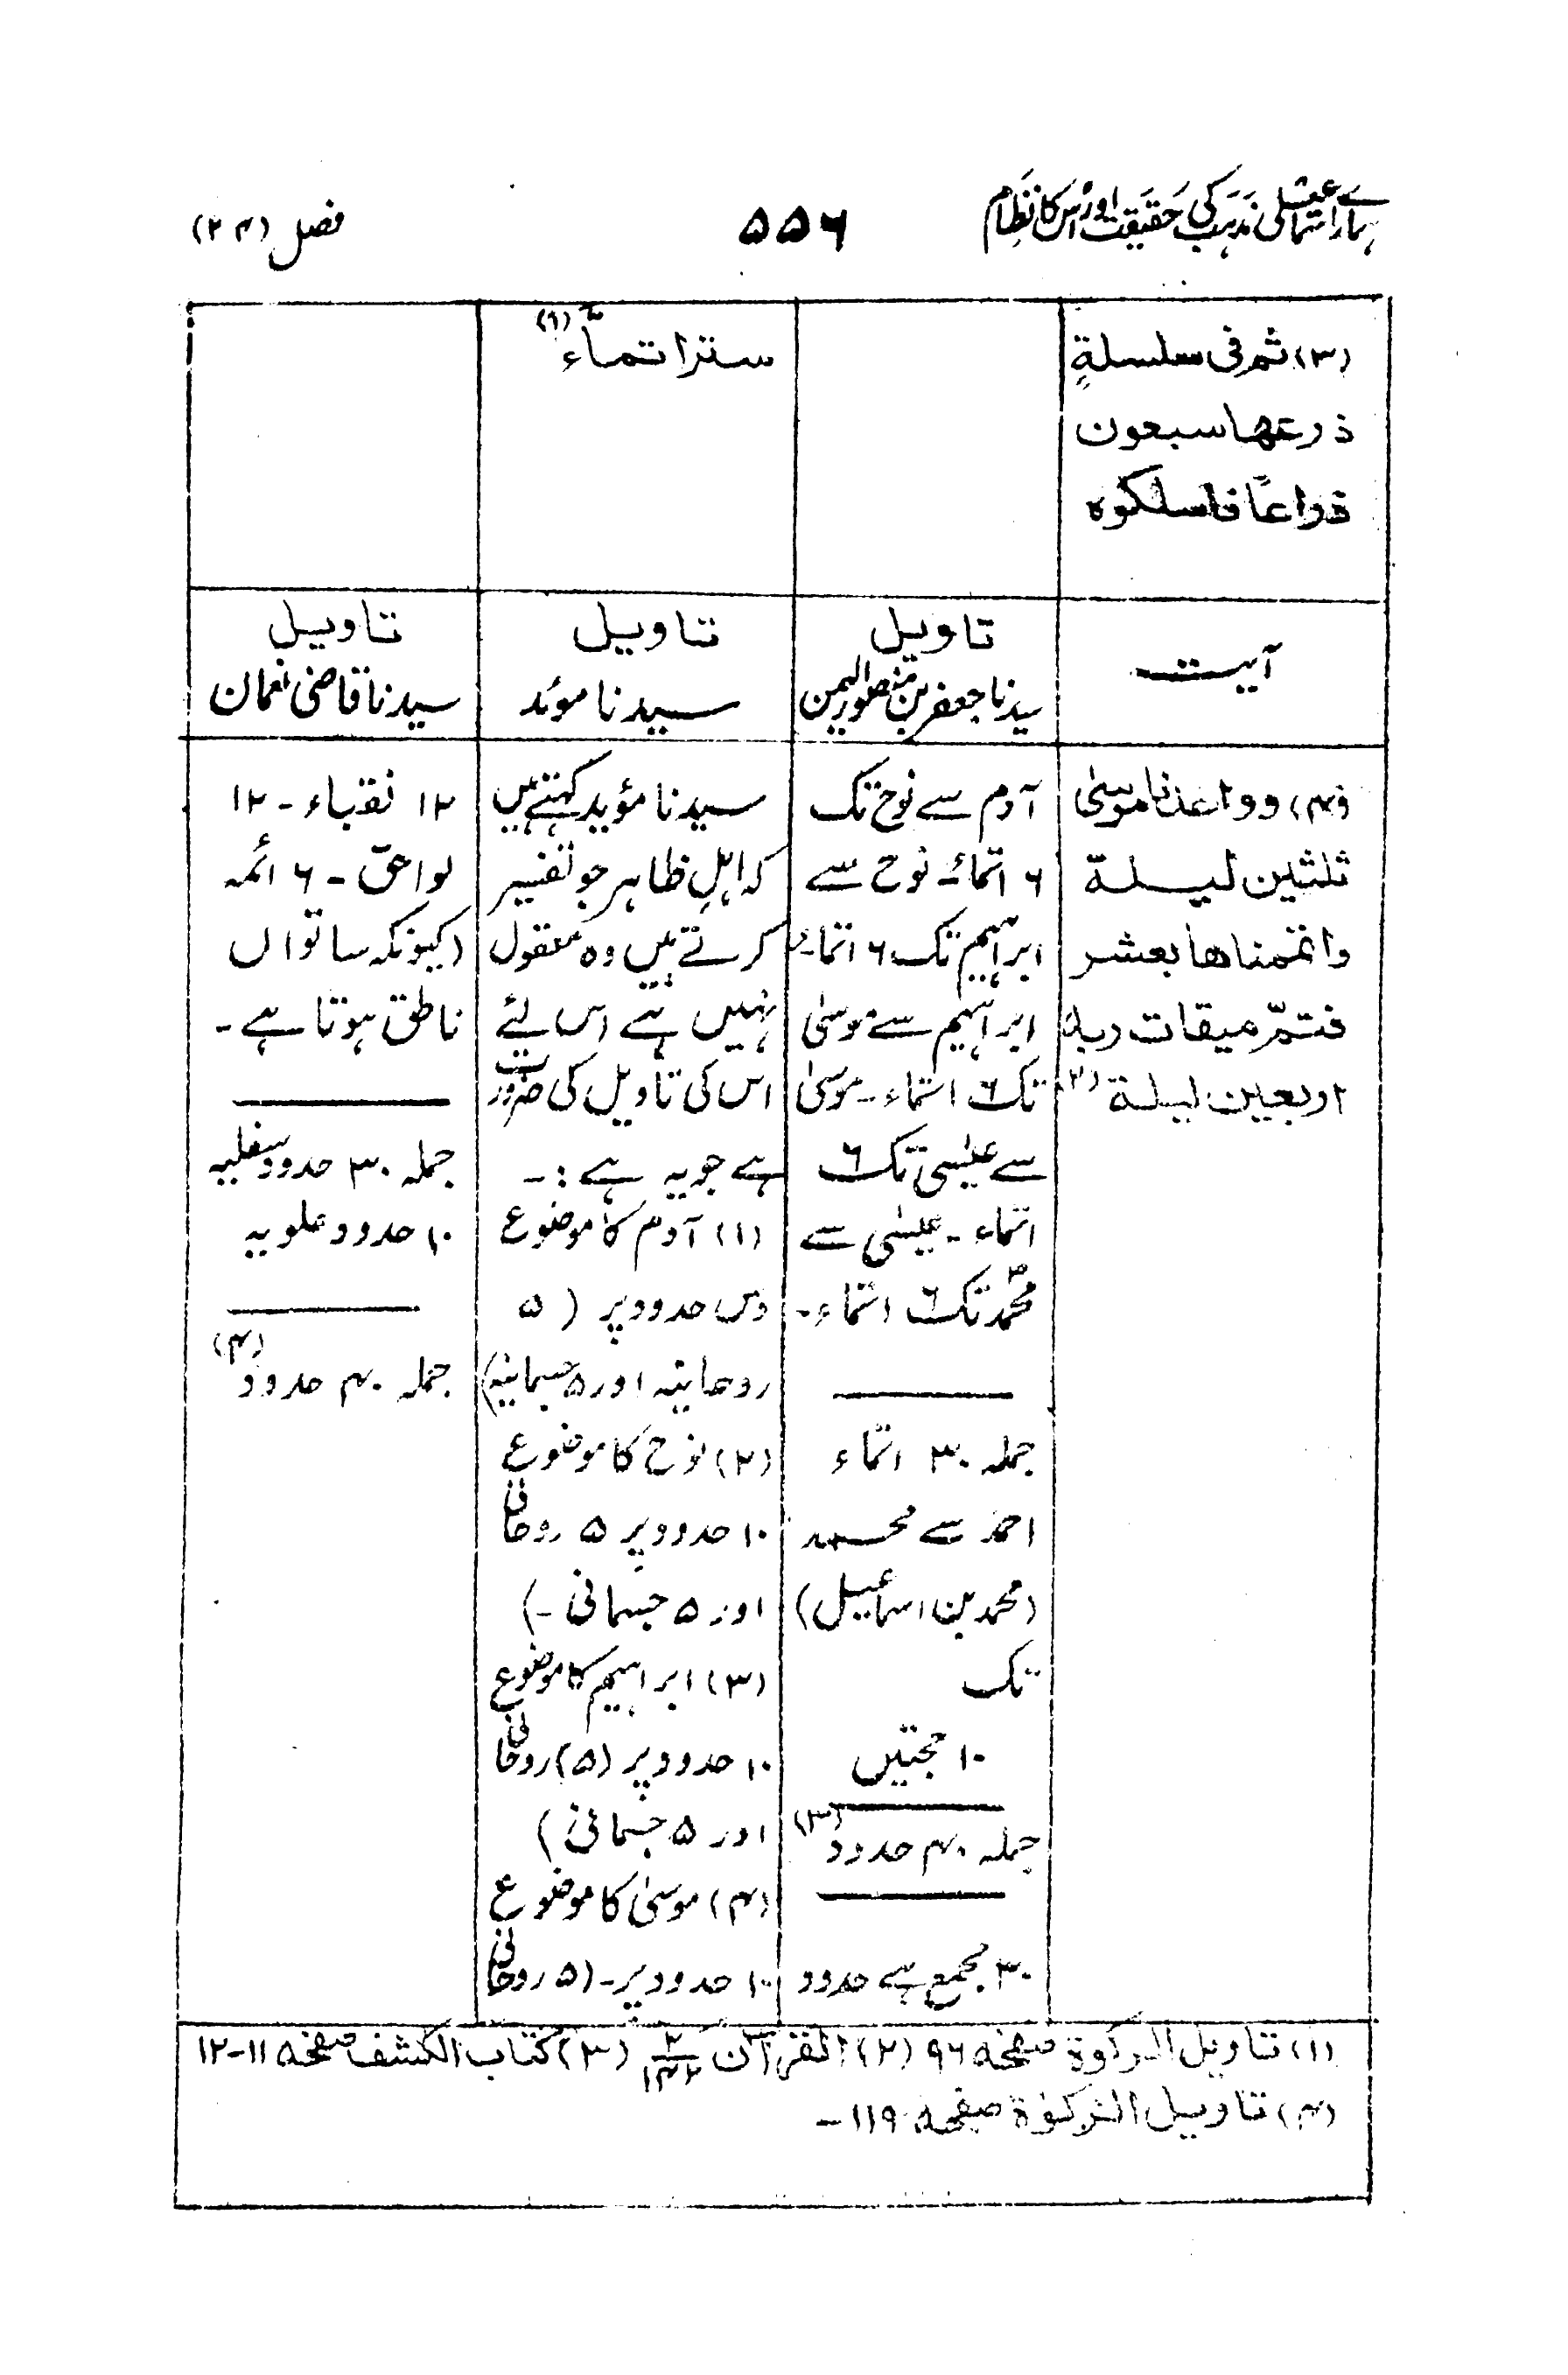 ہمارے اسماعیلی مذہب کی حقیقت اور اس کا نظام
۵۵۶
فصل (۲۴)
(۳) ثم فی سلسلةٍ
ذرعها سبعون
ذراعاً فاسلکوه
ستر اتمّاء (۱)
آیت
تاویل
سیدنا جعفر بن منصور الیمن
تاویل
سیدنا موئد
تاویل
سیدنا قاضی نعمان
(۴) ووٰعدنا موسیٰ
ثلثین لیلة
واتممناها بعشر
فتمّ میقات ربه
اربعین لیلة (۲)
آدم سے نوح تک
۶ اتماء۔ نوح سے
ابراہیم تک ۶ اتماء۔
ابراہیم سے موسیٰ
تک ۶ اتماء۔ موسیٰ
سے عیسیٰ تک ۶
اتماء۔ عیسیٰ سے
محمدؐ تک ۶ اتماء۔
جملہ ۳۰ اتماء
احمد سے محمد
(محمد بن اسماعیل)
تک
۱۰ حجتیں
جملہ ۴۰ حدود (۳)
۳۰ مجمع سے حدود
سیدنا مؤید کہتے ہیں
کہ اہلِ ظاہر جو تفسیر
کرتے ہیں وہ معقول
نہیں ہے اس لئے
اس کی تاویل کی ضرورت
ہے جو یہ ہے :۔
(۱) آدم کا موضوع
دس حدود پر (۵
روحانیہ اور ۵ جسمانیہ)
(۲) نوح کا موضوع
۱۰ حدود پر ۵ روحانی
اور ۵ جسمانی ۔)
(۳) ابراہیم کا موضوع
۱۰ حدود پر (۵) روحانی
اور ۵ جسمانی )
(۴) موسیٰ کا موضوع
۱۰ حدود پر۔ (۵ روحانی
۱۲ نقباء ۔ ۱۲
لواحق ۔ ۶ ائمہ
(کیونکہ ساتواں
ناطق ہوتا ہے ۔
جملہ ۳۰ حدود سفلیہ
۱۰ حدود علویہ
جملہ ۴۰ حدود (۴)
(۱) تاویل الزکوة صفحہ ۹۶ (۲) القرآن ۲/۱۴۲ (۳) کتاب الکشف صفحہ ۱۱-۱۲
(۴) تاویل الزکوٰة صفحہ ۱۱۹ ۔